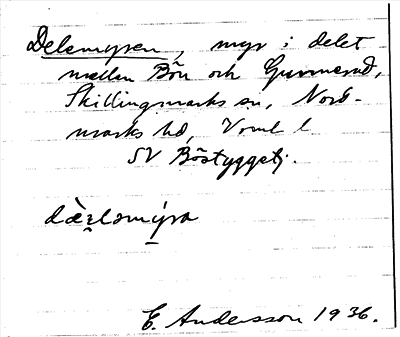 Delsmyren, myr i delet
mellan Bön och Gunnerud,
Skillingmarks sn, Nord-
marks hd, Vrml l
SV Böstyggetj.
dæ̀ḷsmýra
E. Andersson 1936.